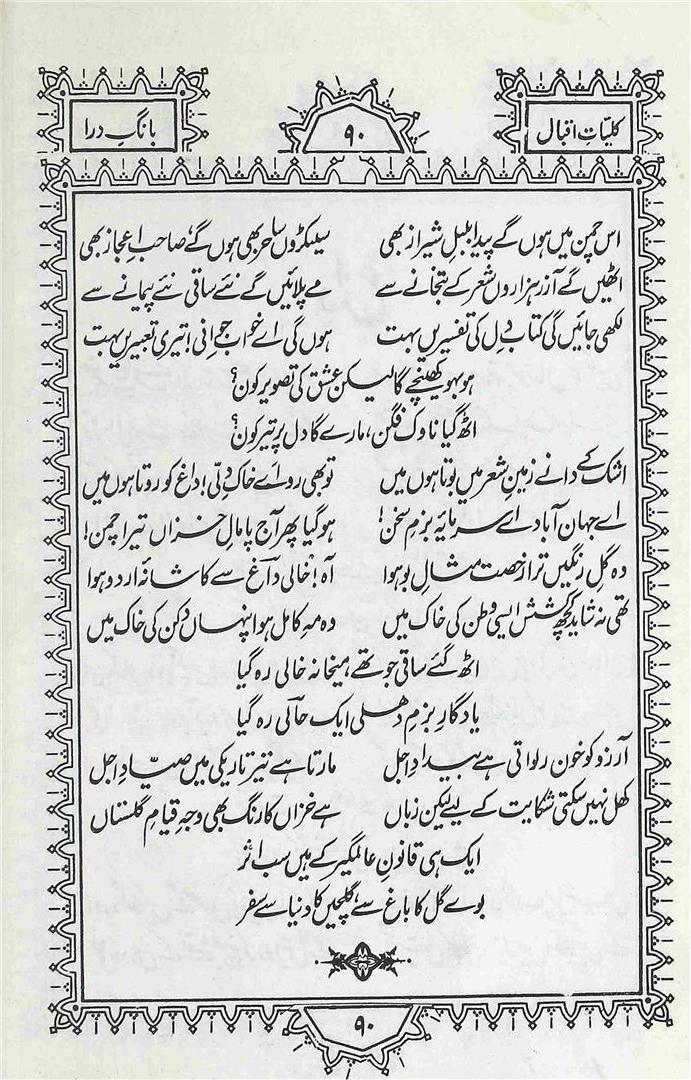 کلیاتِ اقبال ۹۰ بانگِ درا
اس چمن میں ہوں گے پیدا بلبلِ شیراز بھی سیکڑوں ساحر بھی ہوں گے، صاحبِ اعجاز بھی
اٹھیں گے آزر ہزاروں شعر کے بتخانے سے مے پلائیں گے نئے ساقی نئے پیمانے سے
لکھی جائیں گی کتابِ دل کی تفسیریں بہت ہوں گی اے خوابِ جوانی! تیری تعبیریں بہت
ہوبہو کھینچے گا لیکن عشق کی تصویر کون؟
اٹھ گیا ناوک فگن، مارے گا دل پر تیر کون؟
اشک کے دانے زمینِ شعر میں بوتا ہوں میں تو بھی رو اے خاکِ دلّی! داغ کو روتا ہوں میں
اے جہان آباد اے سرمایۂ بزمِ سخن! ہوگیا پھر آج پامالِ خزاں تیرا چمن!
وہ گلِ رنگیں ترا رخصت مثالِ بو ہوا آہ! خالی داغ سے کاشانۂ اردو ہوا
تھی نہ شاید کچھ کشش ایسی وطن کی خاک میں وہ مہِ کامل ہوا پنہاں دکن کی خاک میں
اٹھ گئے ساقی جو تھے میخانہ خالی رہ گیا
یادگارِ بزمِ دھلی ایک حالی رہ گیا
آرزو کو خون رلواتی ہے بیدادِ اجل مارتا ہے تیر تاریکی میں صیّادِ اجل
کھل نہیں سکتی شکایت کے لیے لیکن زباں ہے خزاں کا رنگ بھی وجہِ قیامِ گلستاں
ایک ہی قانونِ عالمگیر کے ہیں سب اثر
بوے گل کا باغ سے، گلچیں کا دنیا سے سفر
۹۰